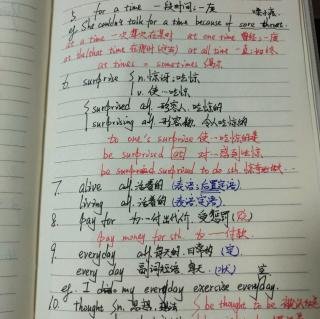 5. for a time 一段时间;一度
eg. She couldn't talk for a time because of sore throat.
at a time 一次;每次;在某时 at one time 曾经;一度
at the/that time 在那时(过去) at all time 一直;始终
at times = sometimes 偶尔
6. surprise { n. 惊讶;吃惊
v. 使…吃惊
{ surprised adj. 形容人, 吃惊的
surprising adj. 形容物, 令人吃惊的
to one's surprise 使…吃惊的是
be surprised at 对…感到吃惊
be surprised to do sth.
7. alive adj. 活着的 (表语;后置定语)
living adj. 活着的 (表语;定语)
8. pay for 为…付出代价, 受惩罚
pay money for sth. 为…付款
9. everyday adj. 每天的, 日常的 (定)
every day 副词短语 每天 (状)
eg. I do my everyday exercise everyday.
10. thought { n. 思想, 想法 { be thought to be